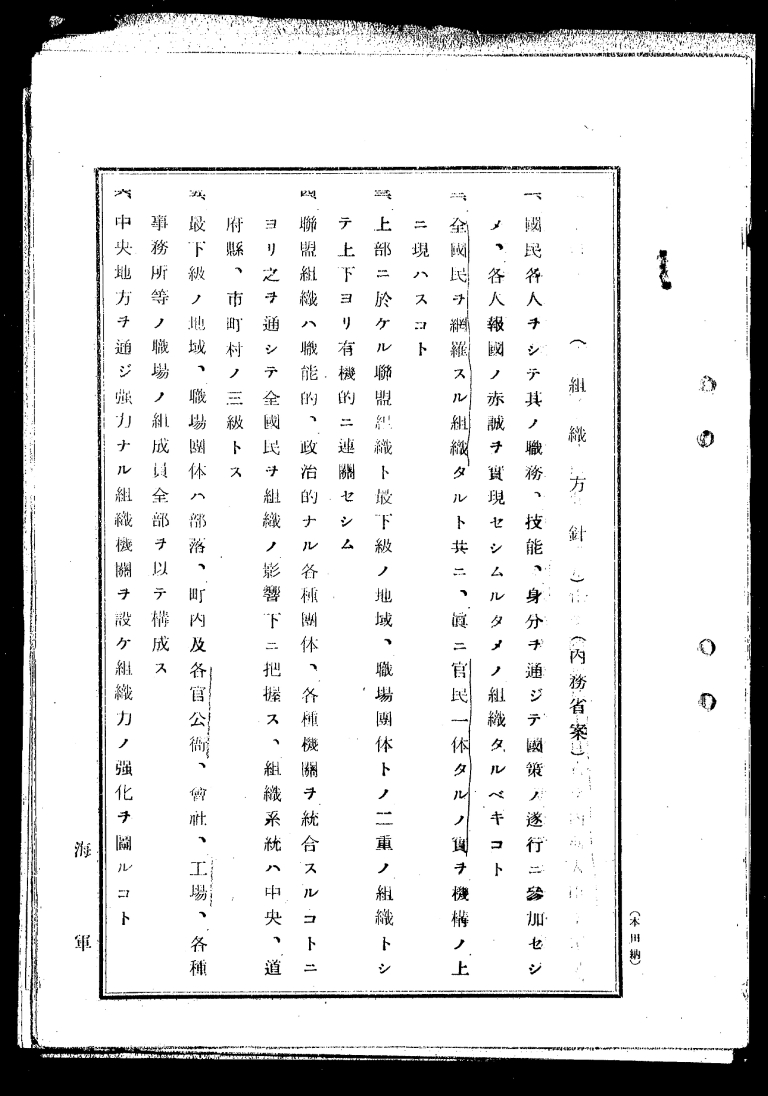 （組織方針）（内務省案）
一、國民各人ヲシテ其ノ職務、技能、身分ヲ通ジテ國策ノ遂行ニ參加セシ
メ、各人報國ノ赤誠ヲ實現セシムルタメノ組織タルベキコト
二、全國民ヲ網羅スル組織タルト共ニ、眞ニ官民一体タルノ實ヲ機構ノ上
ニ現ハスコト
三、上部ニ於ケル聯盟組織ト最下級ノ地域、職場團体トノ二重ノ組織トシ
テ上下ヨリ有機的ニ連關セシム
四、聯盟組織ハ職能的、政治的ナル各種團体、各種機關ヲ統合スルコトニ
ヨリ之ヲ通シテ全國民ヲ組織ノ影響下ニ把握ス、組織系統ハ中央、道
府縣、市町村ノ三級トス
五、最下級ノ地域、職場團体ハ部落、町内及各官公衙、會社、工場、各種
事務所等ノ職場ノ組成員全部ヲ以テ構成ス
六、中央地方ヲ通ジ强力ナル組織機關ヲ設ケ組織力ノ强化ヲ圖ルコト
海軍